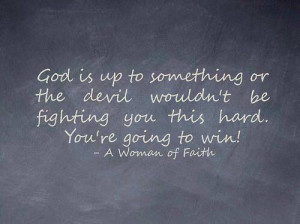 God is up to something or
the devil wouldn't be
fighting you this hard.
You're going to win!
- A Woman of Faith